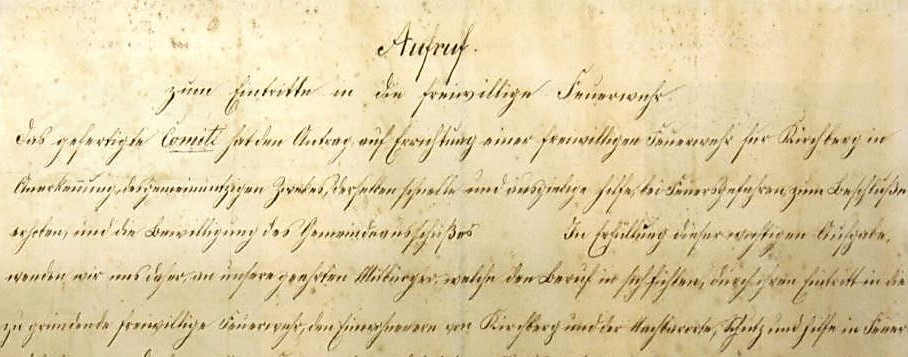 Aufruf.
zum Eintritte in die freiwillige Feuerwehr.
Das gefertigte Comité hat den Antrag auf Errichtung einer freiwilligen Feuerwehr für Kirchberg in
Anerkennung des gemeinnützigen Zweckes, derselben schnelle und ausgiebige Hilfe bei Feuersgefahren, zum Beschluße
erhoben, und die Bewilligung des Gemeindeausschußes In Erfüllung dieser wichtigen Aufgabe,
wenden wir uns daher, an unsere geehrten Mitbürger, welche den Beruf in sich fühlen, durch ihren Eintritt in die
zu gründende freiwillige Feuerwehr, den Einwohnern von Kirchberg und der Nachbarorte, Schutz und Hilfe in Feuer